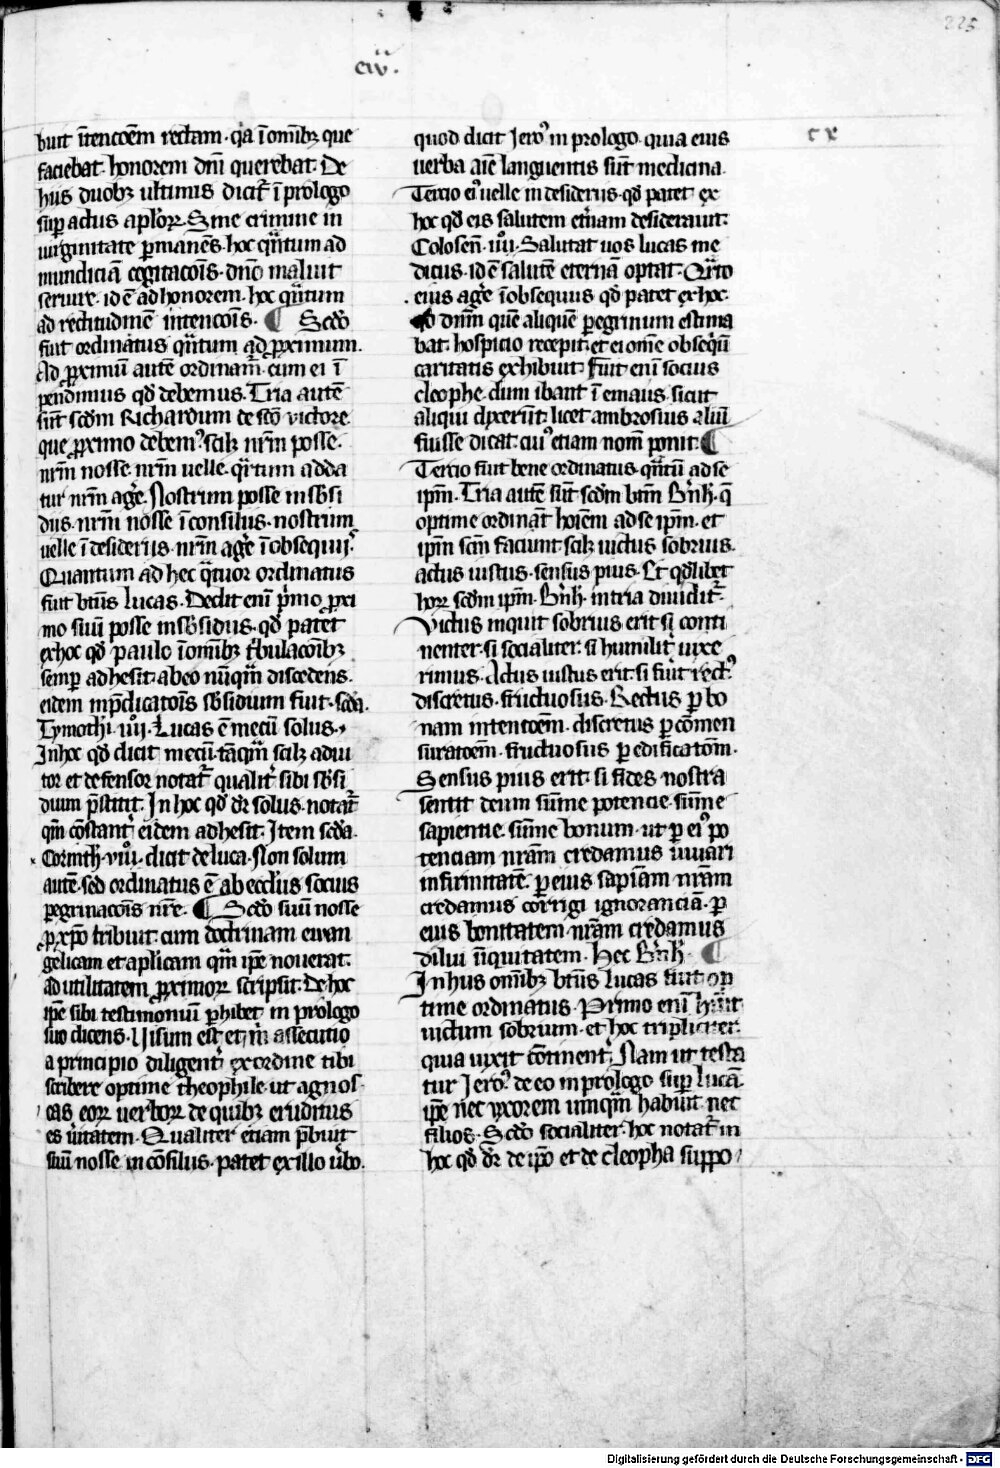 225
ciiij.
cx
buit ītencoēm rectam. qia ī om̄ibꝫ que
faciebat. honorem dn̄i querebat. De
hijs duobꝫ ultimis dicit̄ ī prologo
sup̄ actus aplōꝝ. Sine crimine in
uirginitate ꝑmanēs. hoc qn̄tum ad
mundiciā cogitacoīs. dn̄o maluit
seruire. id ē ad honorem. hoc qn̄tum
ad rectitudinē intencoīs. ¶ Scd̄o
fuit ordinatus qn̄tum ad ꝓximum.
Ad ꝓximū autē ordinam̄. cum ei ī
pendimus qd̄ debemus. Tria autē
sūt scd̄m Richardum de scō victore
que ꝓximo debemꝰ. scilꝫ nr̄m posse.
nr̄m nosse. nr̄m uelle. qr̄tum adda
tur nr̄m agē. Nostrum posse in sb̄si
diis. nr̄m nosse ī consiliis. nostrum
uelle ī desideriis. nr̄m agē ī obsequij.
Quantum ad hec qͣtuor ordinatus
fuit btūs lucas. Dedit eni p̄mo ꝓxi
mo suū posse in sb̄sidiis. qd̄ patet
ex hoc qd̄ paulo ī om̄ibꝫ tͥbulacoībꝫ
semꝑ adhesit. ab eo nūqm̄ discedens.
eidem in p̄dicatoīs sb̄sidium fuit. scd̄a.
Tymothi. iiij. Lucas ē mecū solus.
In hoc qd̄ dicit mecū. tāqm̄ scilꝫ adiu
tor et defensor notat̄ qualit̄ sibi sb̄si
dium p̄stitit. In hoc qd̄ dr̄ solus. notat̄
qm̄ cōstant̄ eidem adhesit. Item scd̄a.
Corinth. viij. dicit de luca. Non solum
autē. sed ordinatus ē ab eccl̄iis socius
ꝑegrinacoīs nr̄e. ¶ Scd̄o suū nosse
ꝓximo tribuit. cum doctrinam ewan
gelicam et aplicam qm̄ ip̄e nouerat.
ad utilitatem ꝓximoꝝ scripsit. De hoc
ip̄e sibi testimoniū ꝑhibet in prologo
suo dicens. Uisum est et mͥ assecuto
a principio diligent̄ ex ordine tibi
scribere optime theophile. ut agnos
cas eoꝝ uerboꝝ de quibꝫ eruditus
es ūitatem. Qualiter etiam p̄buit
suū nosse in cōsiliis. patet ex illo ūbo.
quod dicit Jeroꝰ in prologo. quia eius
uerba aīe languentis sūt medicina.
Tercio eiꝰ uelle in desideriis. qd̄ patet ex
hoc qd̄ eis salutem etn̄am desiderauit.
Colosen̄. iiij. Salutat uos lucas me
dicus. id ē salutē eternā optat. Qͣrto
eius agē ī obsequiis qd̄ patet ex hoc.
qd̄ dn̄m quē aliquē ꝑegrinum estima
bat. hospicio recepit. et ei om̄e obseqiū
caritatis exhibuit. Fuit eni socius
cleophe. dum ibant ī emaus. sicut
aliqui dixerūt. licet ambrosius aliū
fuisse dicat. cuiꝰ etiam nom̄ ponit. ¶
Tercio fuit bene ordinatus qn̄tū ad se
ip̄m. Tria autē sūt scd̄m btm̄ Bern̄h. q̄
optime ordināt hoīem ad se ip̄m. et
ip̄m scm̄ faciunt. scilꝫ uictus sobrius.
actus iustus. sensus pius. Et qd̄libet
hoꝝ scd̄m ip̄m. Bern̄h. in tria diuidit̄.
Victus inquit sobrius erit si conti
nenter. si socialiter. si humilit̄ uixe
rimus. Actus iustus erit. si fūit rectꝰ
discretus. fructuosus. Rectus ꝑ bo
nam intencoēm. discretus ꝑ cōmen
suratoēm. fructuosus ꝑ edificatōm.
Sensus pius erit. si fides nostra
sentit deum sūme potencie. sūme
sapientie. sūme bonum. ut ꝑ eiꝰ po
tenciam nr̄am credamus iuuari
infirmitatē. ꝑ eius sapiam nr̄am
credamus corrigi ignoranciā. ꝑ
eius bonitatem nr̄am credamus
dilui īiquitatem. Hec Bern̄h. ¶
In hiis om̄ibꝫ btūs lucas fuit op
time ordinatus. Primo eni habuit
uictum sobrium. et hoc tripliciter.
quia uixit cōtinent̄. Nam ut testa
tur Jeroꝰ. de eo in prologo sup̄ lucā.
ip̄e nec uxorem umqm̄ habuit nec
filios. Scd̄o socialiter. hoc notat̄ in
hoc qd̄ dr̄ de ip̄o et de cleopha suppo
Digitalisierung gefördert durch die Deutsche Forschungsgemeinschaft - DFG